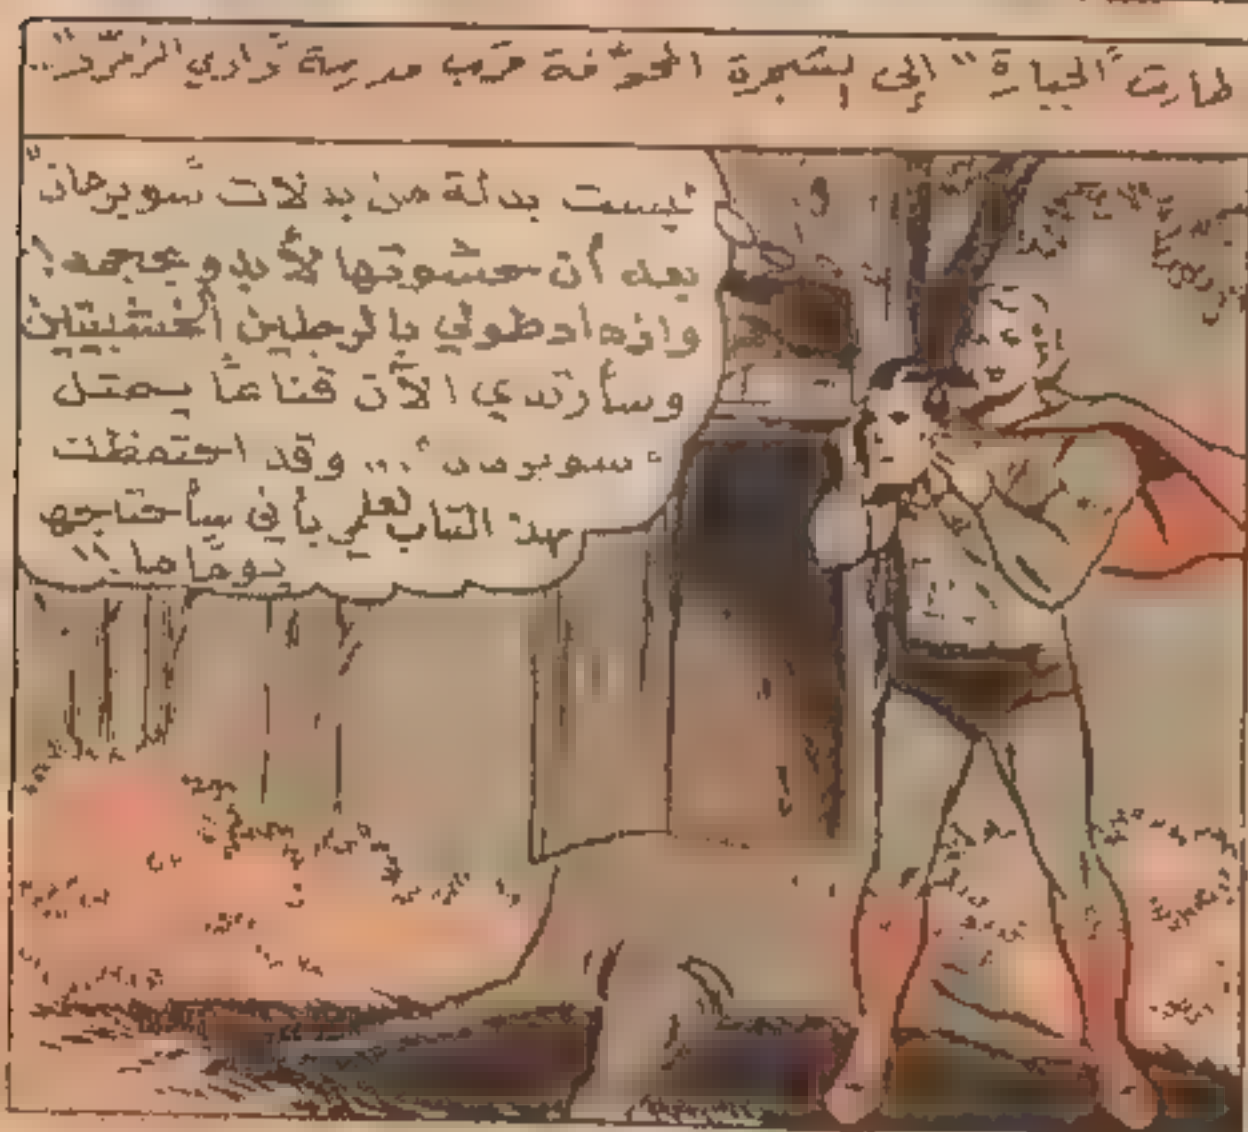 طارت "الجبارة" إلى الشجرة المجوّفة قرب مدرسة
لبست بدلة من بدلات سوبرمان
بعد أن حشوتها لأبدو بحجمه!
بالرجلين الخشبيتين
وسأرتدي الآن قناعاً يمثل
"سوبرمان"... وقد احتفظت
بهذا القناع لعلمي بأني سأحتاجه
يوماً ما!!